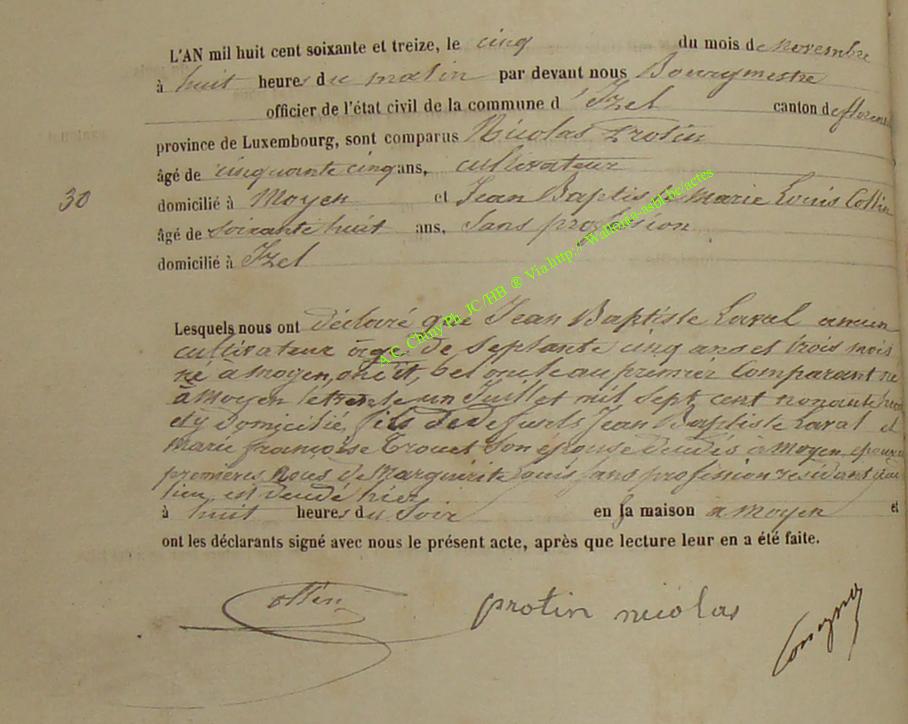 L'AN mil huit cent soixante et treize, le cinq du mois de novembre
à huit heures du matin par devant nous Bourgmestre
officier de l'état civil de la commune d'Izel canton de
province de Luxembourg, sont comparus Nicolas Protin
âgé de cinquante cinq ans, cultivateur
30
domicilié à Moyen et Jean Baptiste Marie Louis Collin
âgé de soixante huit ans, Sans profession
domicilié à Izel
A.C. Chiny Ph. JC /HB ® Via http://Wallonia-asbl.be/actes
Lesquels nous ont déclaré que Jean Baptiste Laval ancien
cultivateur âgé de septante cinq ans et trois mois
né a moyen, au premier Comparant né
à Moyen le trente un Juillet mil sept cent nonante
et y domicilié, fils de defunts Jean Baptiste Laval et
Marie françoise son épouse à Moyen, epoux
premières noces de Marguerite Louis sans profession
lieu, est hier
à huit heures du Soir en sa maison a moyen et
ont les déclarants signé avec nous le présent acte, après que lecture leur en a été faite.
Collin protin nicolas